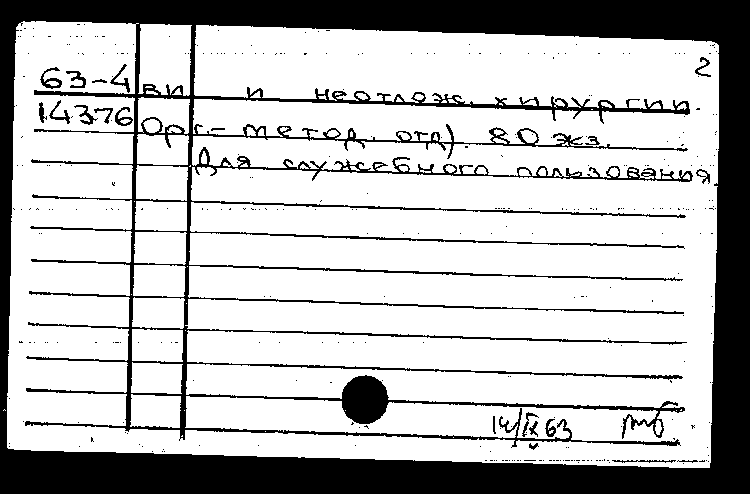 2
63-4 ви и неотлож. хирургии.
14376 Орг.-метод. отд). 80 экз.
Для служебного пользования.
14/IX 63